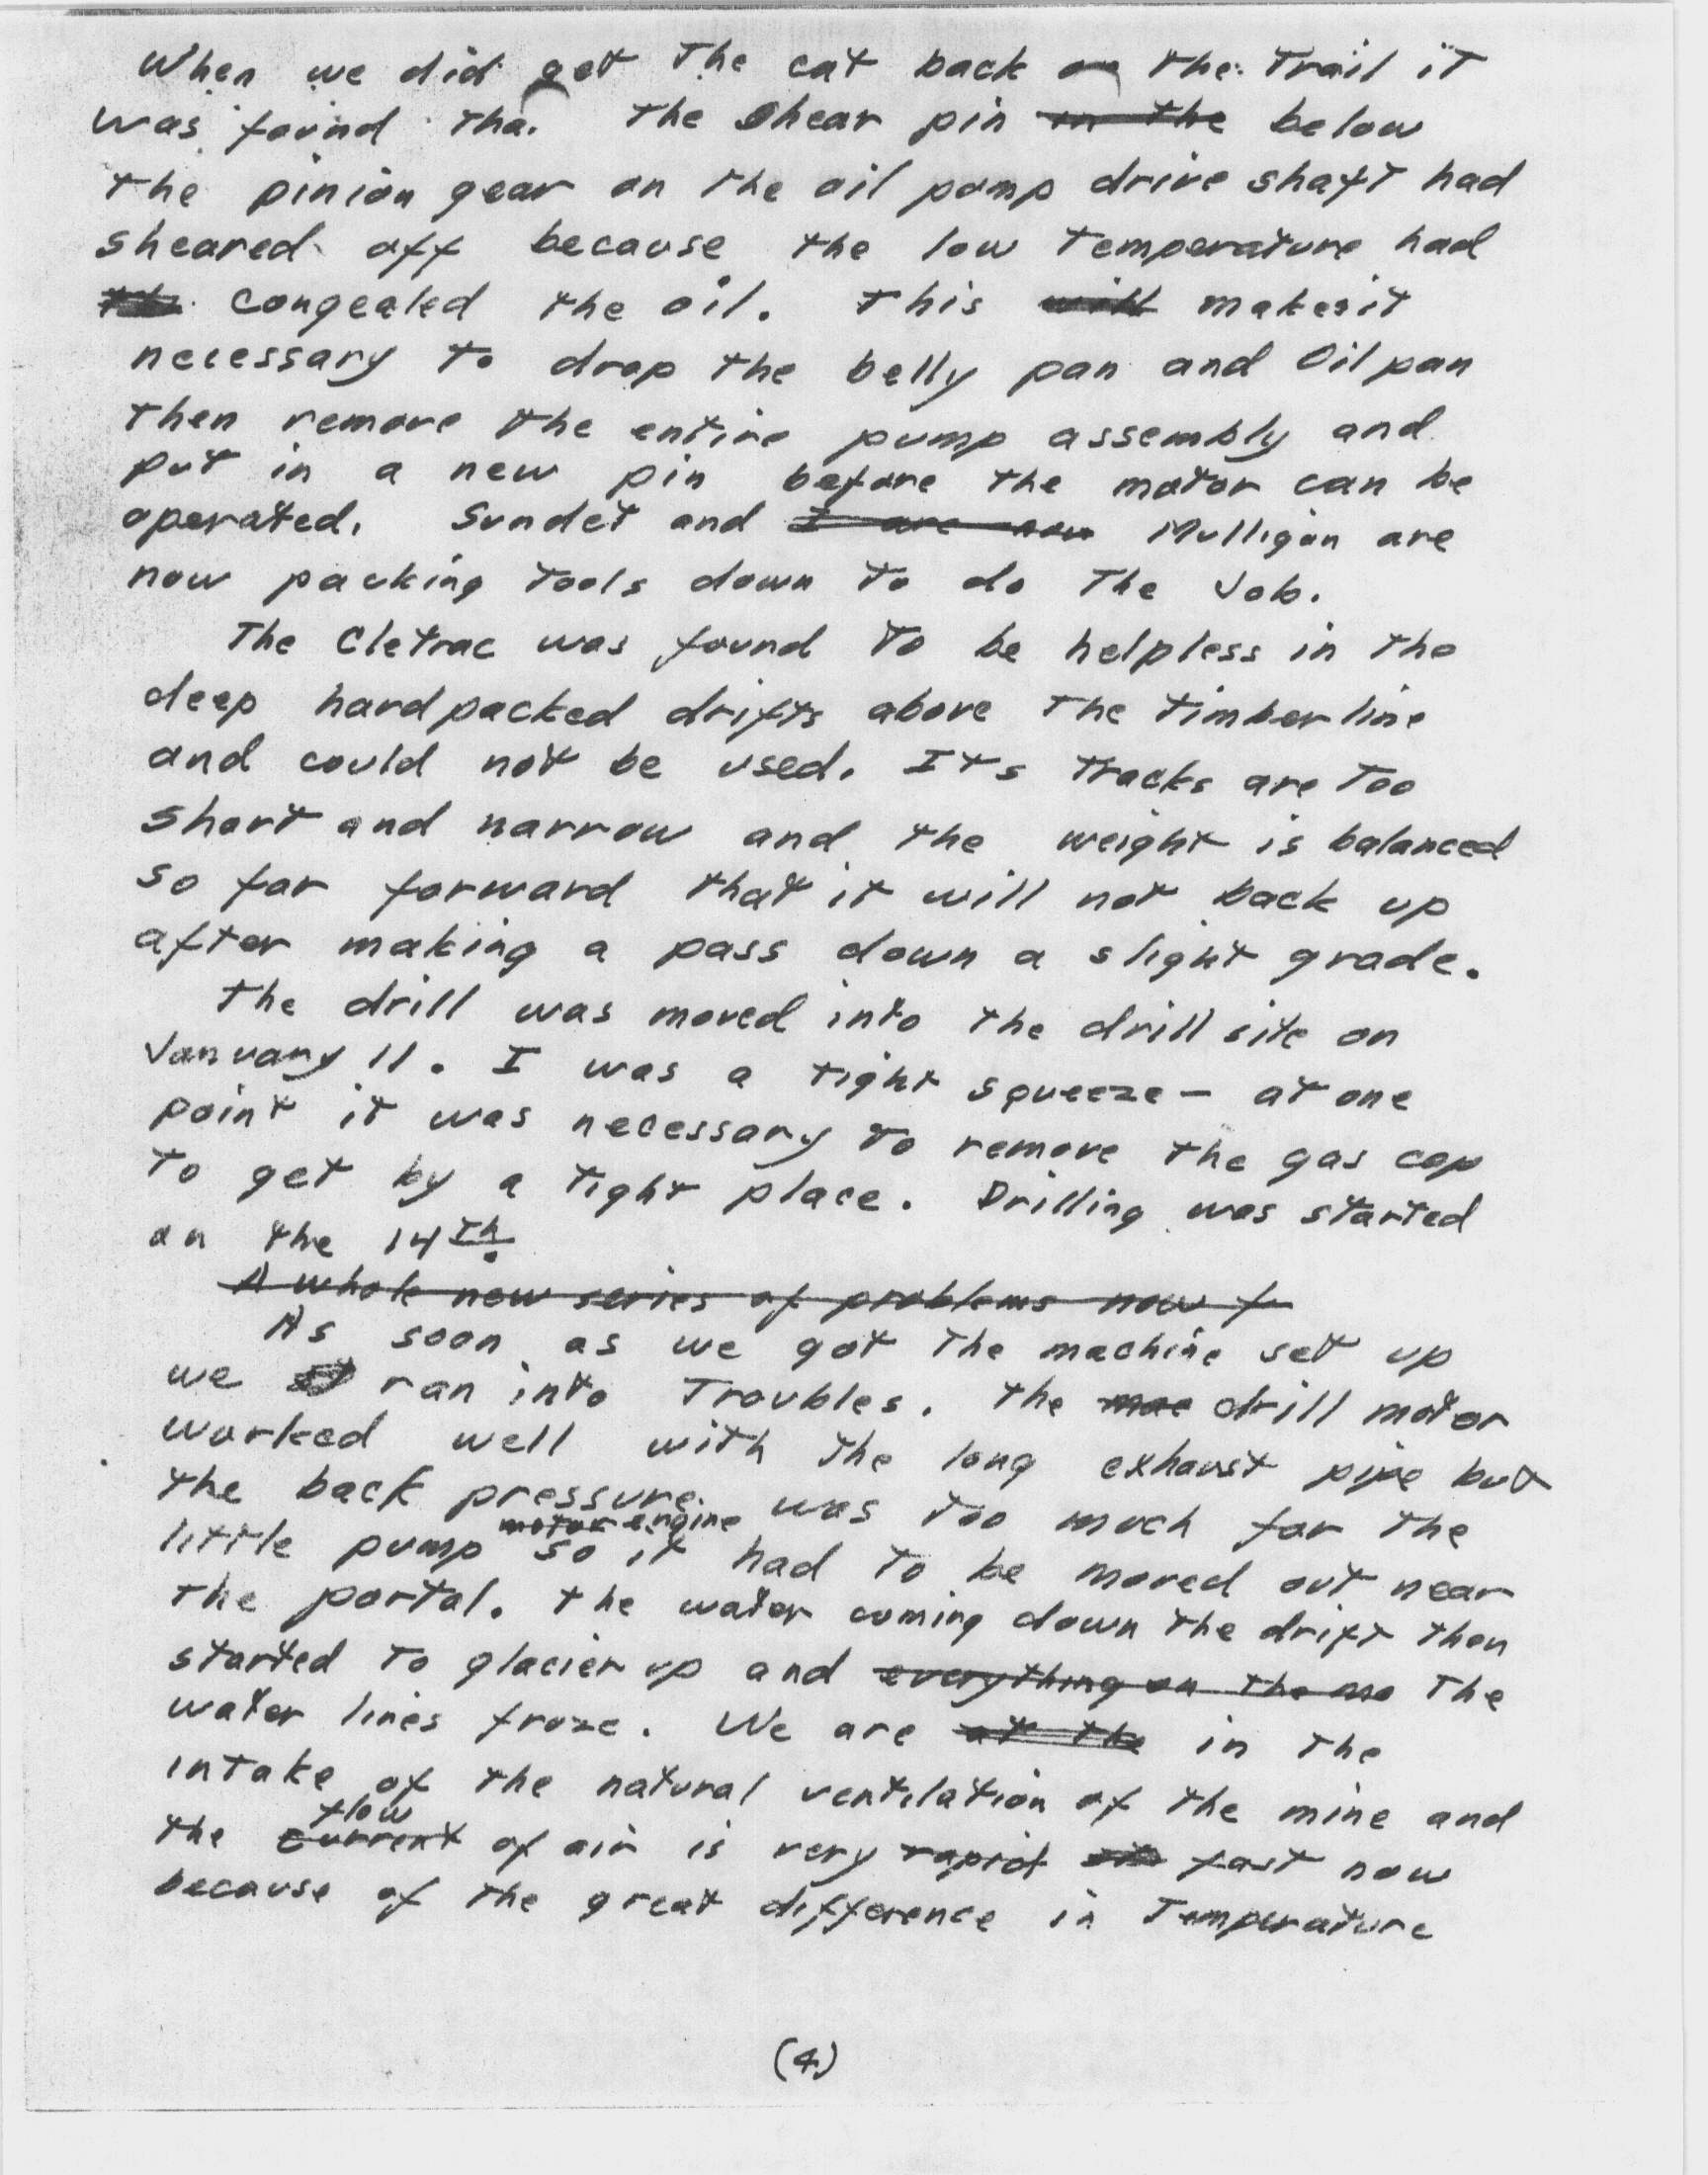 When we did get the cat back on the trail it
was found tha. the shear pin in the below
the pinion gear on the oil pump drive shaft had
sheared off because the low temperature had
th congealed the oil. This will makes it
necessary to drop the belly pan and Oil pan
then remove the entire pump assembly and
put in a new pin before the motor can be
operated. Sundet and I are now Mulligan are
now packing tools down to do the Job.
The Cletrac was found to be helpless in the
deep hardpacked drifts above the timberline
and could not be used. Its tracks are too
short and narrow and the weight is balanced
so far forward that it will not back up
after making a pass down a slight grade.
The drill was moved into the drill site on
January 11. I was a tight squeeze - at one
point it was necessary to remove the gas cap
to get by a tight place. Drilling was started
on the 14th.
A whole new series of problems now f
As soon as we got the machine set up
we st ran into troubles. The mac drill motor
worked well with the long exhaust pipe but
the back pressure was too much for the
motor engine
little pump so it had to be moved out near
the portal. The water coming down the drift then
started to glacier up and everything on the ma the
water lines froze. We are at the in the
intake of the natural ventilation of the mine and
flow
the current of air is very rapid fast now
because of the great difference in Temperature
(4)